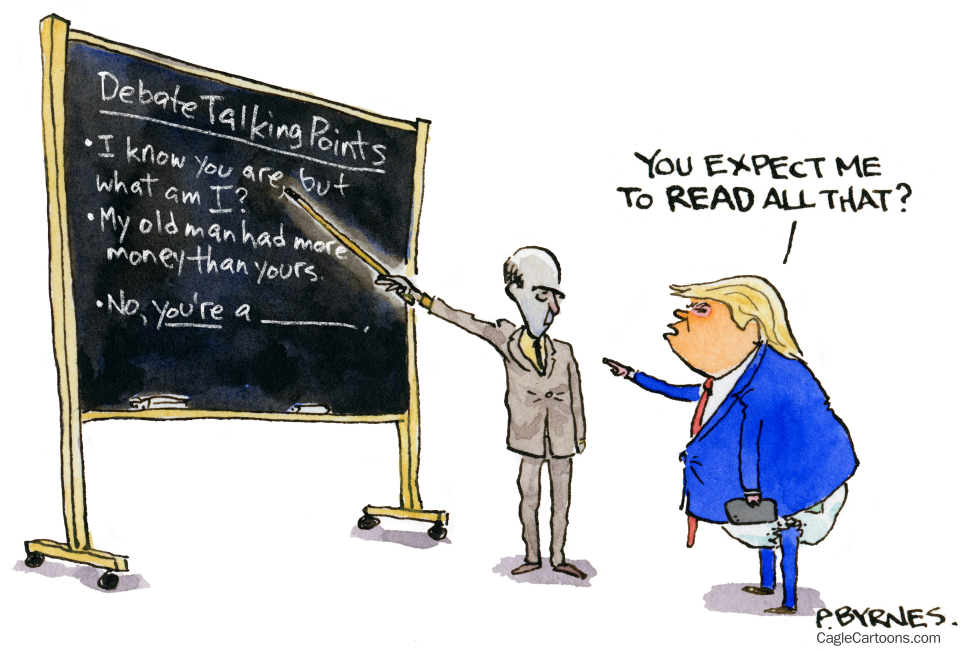 Debate Talking Points
• I know you are, but
what am I?
• My old man had more
money than yours.
• No, you're a ________.
YOU EXPECT ME
TO READ ALL THAT?
P. BYRNES.
CagleCartoons.com